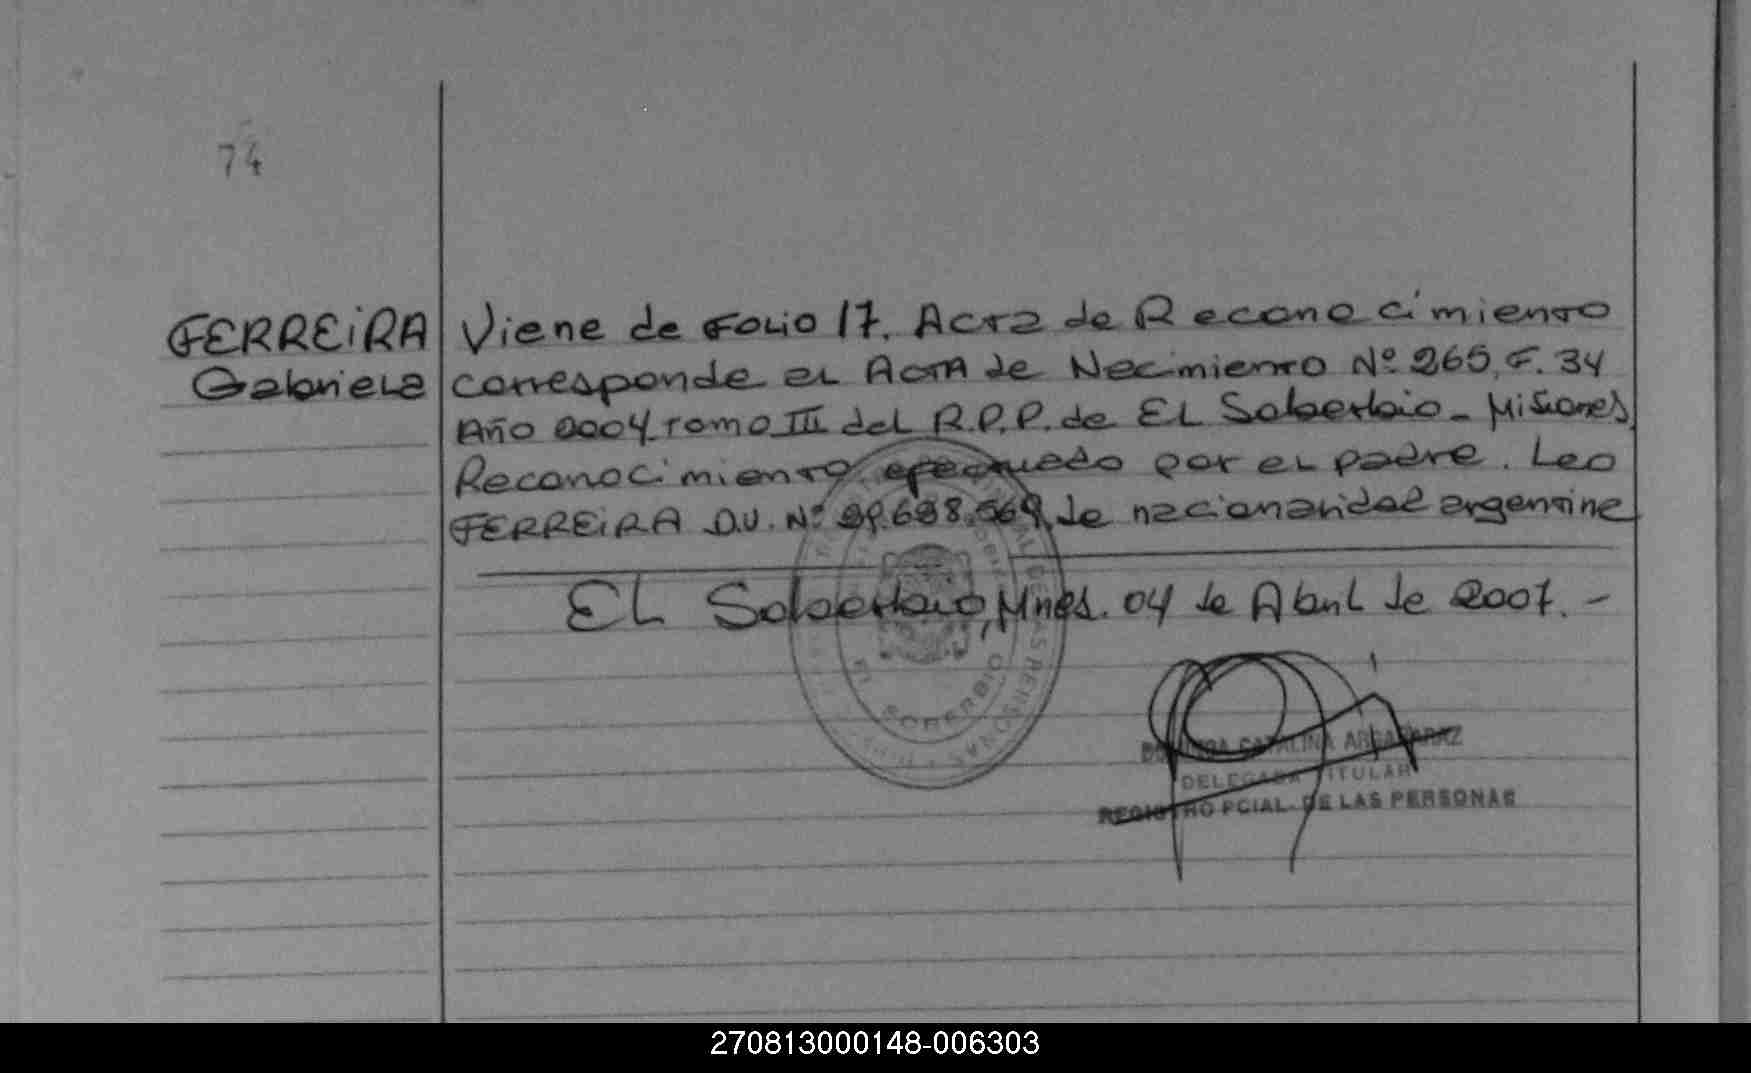 74
FERREIRA
Gabriela
Viene de Folio 17. Acta de Reconocimiento
corresponde al Acta de Nacimiento Nº 265, F. 34
Año 2004 Tomo III del R.P.P. de El Soberbio - Misiones.
Reconocimiento efectuado por el padre. Leo
FERREIRA D.U. Nº de nacionalidad argentina
El Soberbio, Mnes. 04 de Abril de 2007. -
EL SOBERBIO
CATALINA
DELEGADA TITULAR
REGISTRO PCIAL. DE LAS PERSONAS
270813000148-006303